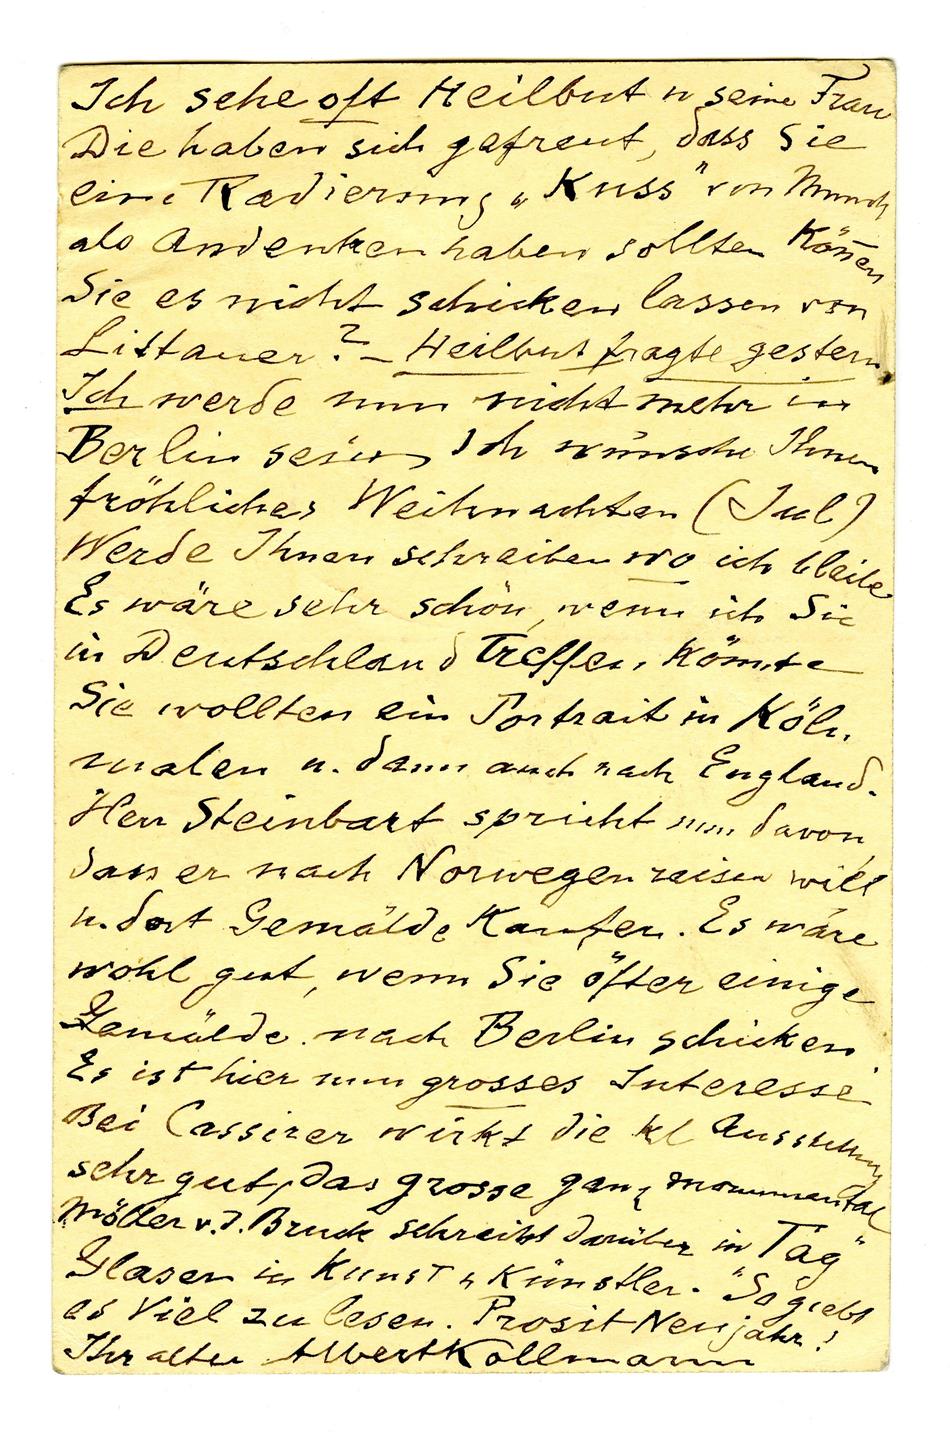 Ich sehe oft Heilbut u seine Frau
Die haben sich gefreut, dass Sie
eine Radierung „Kuss" von Munch
als Andenken haben sollten Können
Sie es nicht schicken lassen von
Littauer? – Heilbut fragte gestern
Ich werde nun nicht mehr in
Berlin sein, Ich wünsche Ihnen
fröhliches Weihnachten (Jul)
Werde Ihnen schreiben wo ich bleibe
Es wäre sehr schön, wenn ich Sie
in Deutschland Treffen könnte
Sie wollten ein Portrait in Köln
malen u. dann auch nach England.
Herr Steinbart spricht nun davon,
dass er nach Norwegen reisen will
u. dort Gemälde Kaufen. Es wäre
wohl gut, wenn Sie öfter einige
Gemälde nach Berlin schicken
Es ist hier nun grosses Interesse
Bei Cassirer wirkt die kl Ausstellung
sehr gut, das grosse ganz monumental
Möller v. d. Bruck schreibt darüber in Tag"
Glaser in Kunst u Künstler. "So giebt
es Viel zu lesen. Prosit Neujahr!
Ihr alter Albert Kollmann